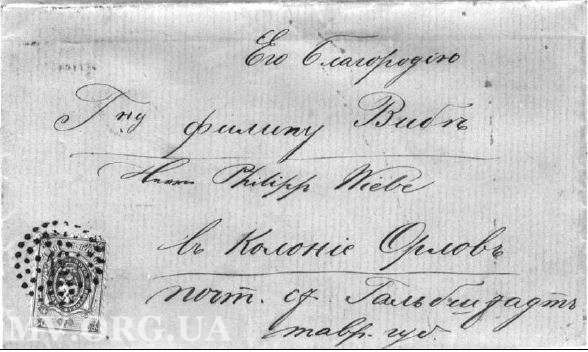 Его Благородію
Гну Филипу Вибъ
Herrn Philipp Wiebe
въ Колоніе Орловъ
почт. ст. Гальбштадтъ
тавр. губ.
MV.ORG.UA